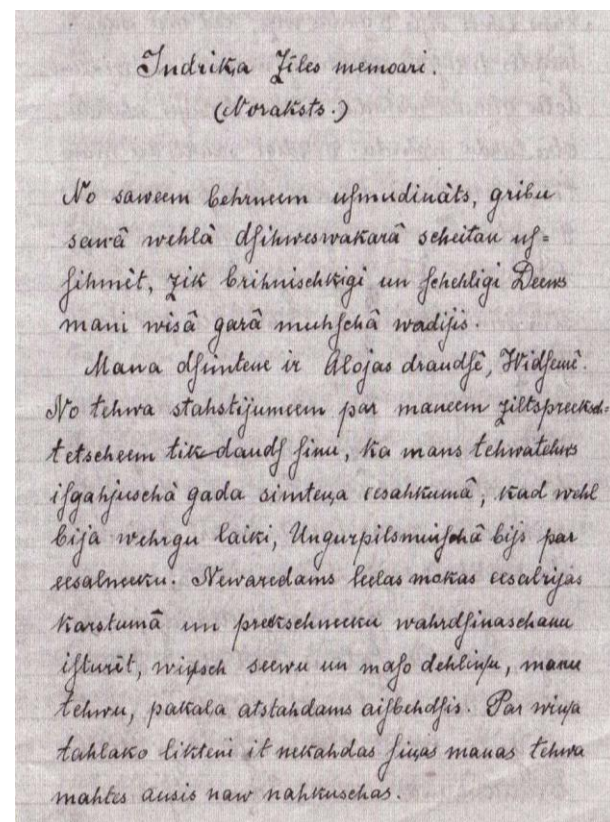 Indriķa Zīles memoari.
(Noraksts.)
No saweem behrneem usmudinàts, gribu
sawâ wehlâ dsihweswakarâ scheitan us=
sihmêt, zik brihnischkigi un schehligi Deews
mani wisâ garâ muhschâ wadijis.
Mana dsimtene ir Alojas draudsê, Widsemê.
No tehwa stahstijumeem par maneem ziltspreeksch=
tetscheem tik daudf sinu, ka mans tehwatehws
isgahjuschâ gada simteņa eesahkumâ, kad wehl
bija wehrgu laiki, Ungurpilsmuischâ bijs par
eesalneeku. Newaredams leelas mokas eesalrijas
karstumâ un preekschneeku wahrdsinaschanu
isturêt, wiņsch seewu un maso dehliņu, manu
tehwu, pakaļa atstahdams aisbehdsis. Par wiņa
tahlako likteni it nekahdas siņas manas tehwa
mahtes ausis naw nahkuschas.